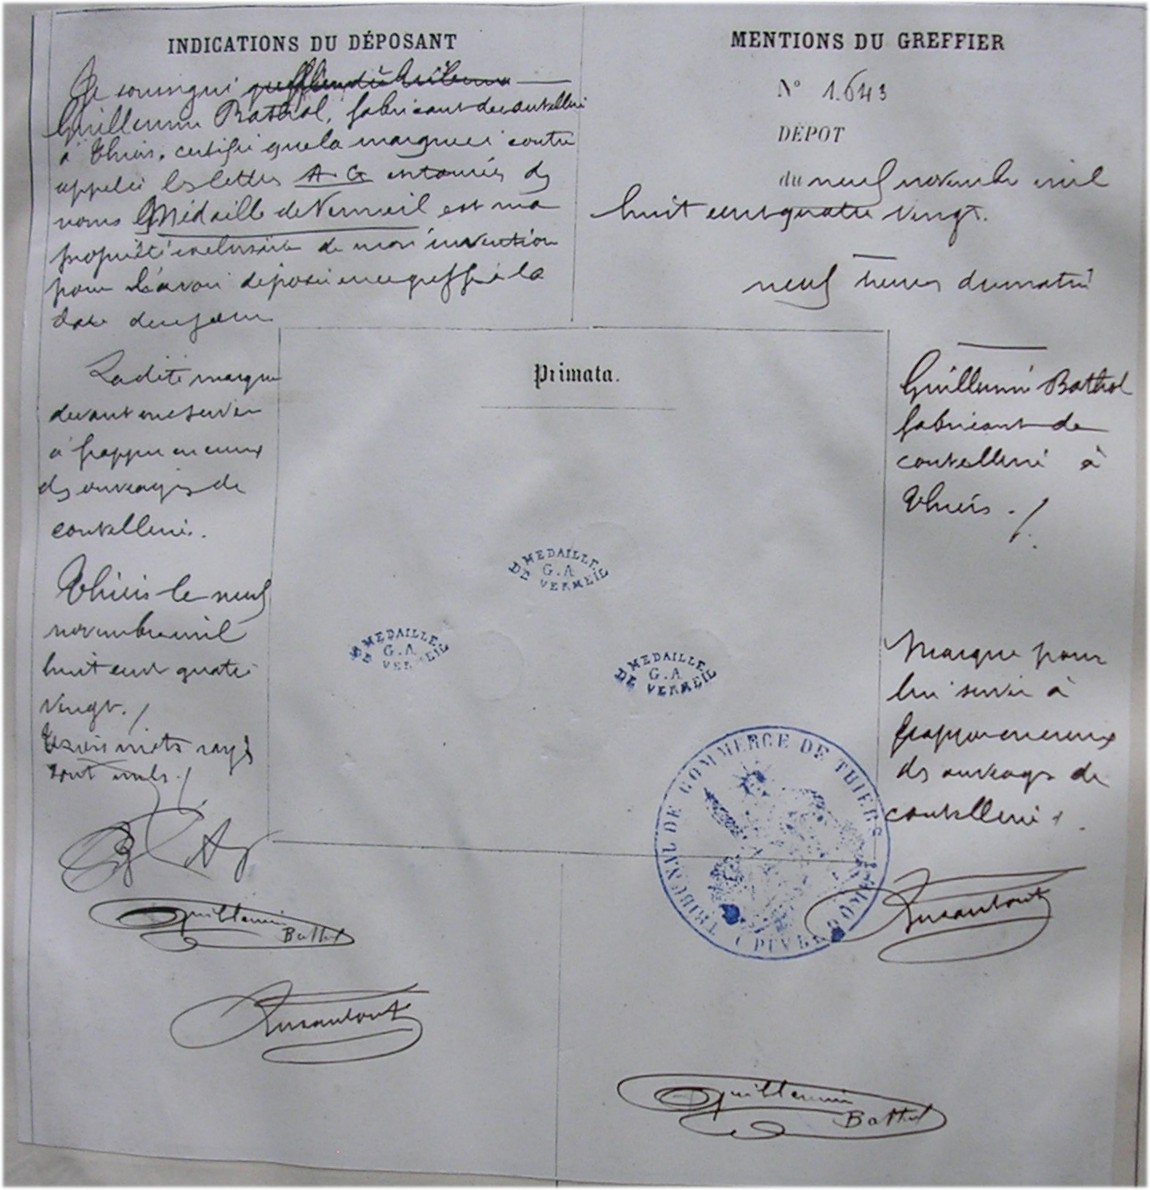 INDICATIONS DU DÉPOSANT
Je soussigné
Guillemin Bathol, fabricant de coutellerie
à Thiers, certifie que la marque ci contre
appelée les lettres A G entourées des
noms Médaille de Vermeil est ma
propriété exclusive de mon invention
pour l'avoir déposée au greffe à la
date de ce jour
La dite marque
devant me servir
à frapper en creux
des ouvrages de
coutellerie.
Thiers le neuf
novembre mil
huit cent quatre
vingt.
mots rayés
sont nuls.
Guillemin
Bathol
MENTIONS DU GREFFIER
N° 1.643
DÉPOT
du neuf novembre mil
huit cent quatre vingt.
neuf heures du matin
Guillemin Bathol
fabricant de
coutellerie à
Thiers.
Marque pour
lui servir à
frapper en creux
des ouvrages de
coutellerie.
Primata.
MEDAILLE
G.A
DE VERMEIL
MEDAILLE
G.A
VERMEIL
MEDAILLE
G.A
DE VERMEIL
TRIBUNAL DE COMMERCE DE THIERS
Guillemin
Bathol